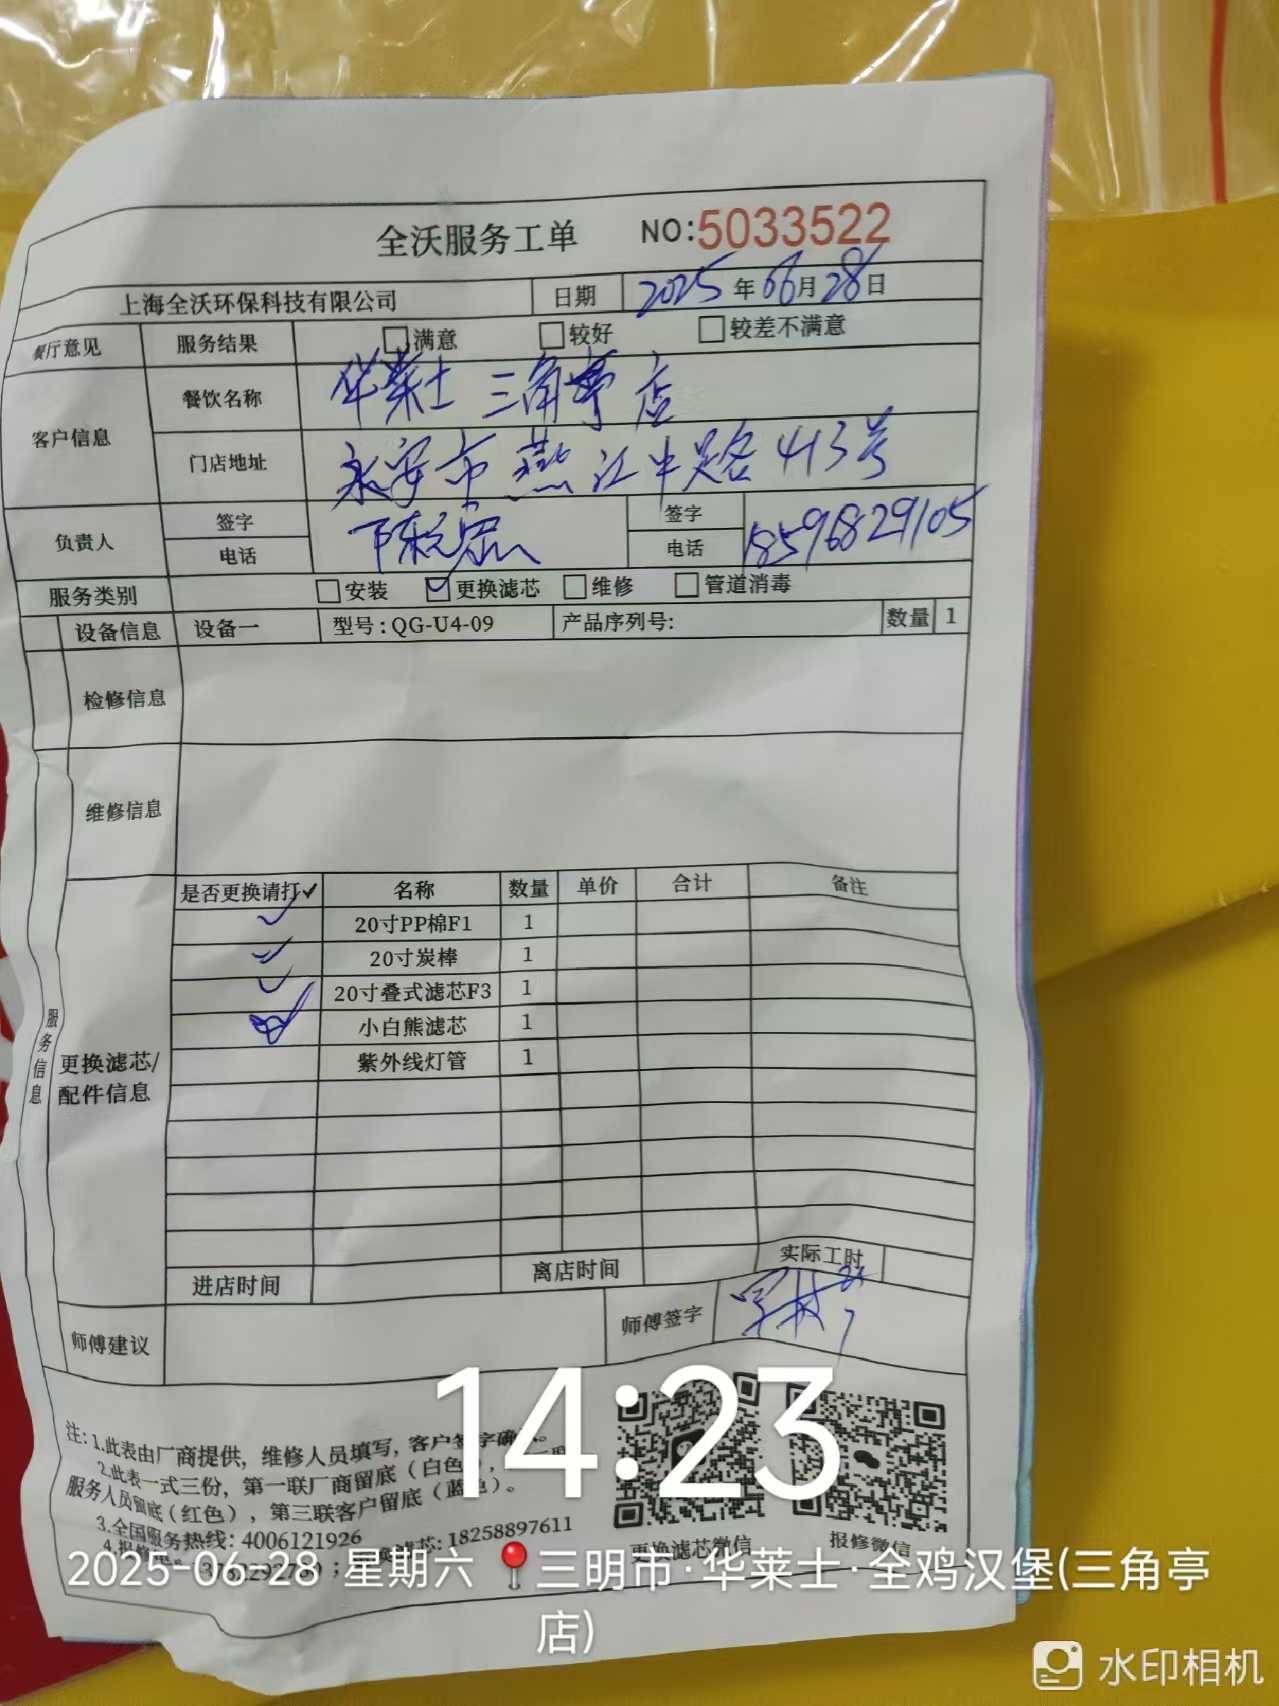 全沃服务工单 NO:5033522
上海全沃环保科技有限公司 日期 2025年06月28日
餐厅意见 服务结果 满意 较好 较差不满意
客户信息 餐饮名称 华莱士 三角亭店
门店地址 永安市燕江中路413号
负责人 签字 签字
电话 电话 18596829105
服务类别 安装 更换滤芯 维修 管道消毒
设备信息 设备一 型号:QG-U4-09 产品序列号: 数量 1
检修信息
维修信息
服务信息
更换滤芯/配件信息
是否更换请打✓ 名称 数量 单价 合计 备注
✓ 20寸PP棉F1 1
✓ 20寸炭棒 1
✓ 20寸叠式滤芯F3 1
小白熊滤芯 1
紫外线灯管 1
进店时间 离店时间 实际工时
师傅建议 师傅签字
注:1.此表由厂商提供,维修人员填写,客户签字确
2.此表一式三份,第一联厂商留底(白色),
服务人员留底(红色),第三联客户留底(蓝色)。
3.全国服务热线:4006121926
18258897611
更换滤芯微信 报修微信
14:23
2025-06-28 星期六 三明市·华莱士·全鸡汉堡(三角亭
店)
水印相机